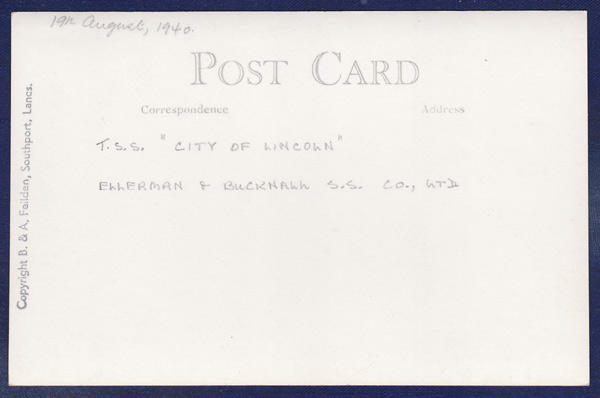 19th August, 1940.
POST CARD
Correspondence Address
T.S.S. "CITY OF LINCOLN"
ELLERMAN & BUCKNALL S.S. CO., LTD
Copyright B. & A. Feilden, Southport, Lancs.